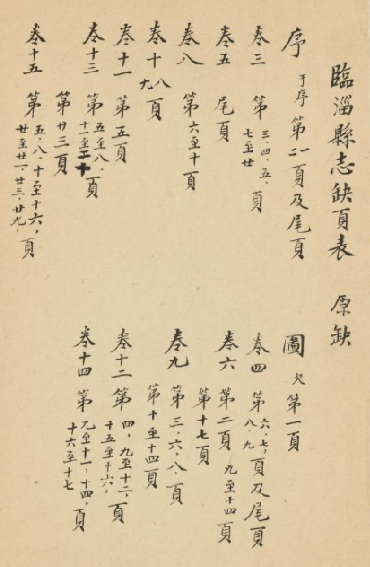 臨淄縣志缺頁表　原缺
序　于序第二一頁及尾頁
圖　欠第一頁
卷三　第三·四·五·七至廿頁
卷四　第六·七·八·九頁及尾頁
卷五　尾頁
卷六　第二頁　九至十四頁
第十七頁
卷八　第六至十頁
卷九　第三·六·八頁
第十至十四頁
卷十　八九頁
卷十一　第五頁
卷十二　第四·九至十二·十五至十六·頁
卷十三　第五至八·十一至二十頁
第廿三頁
卷十四　第九至十一·十四·十六至十七頁
卷十五　第五·八·十至十六·廿至廿一·廿三·廿九·頁